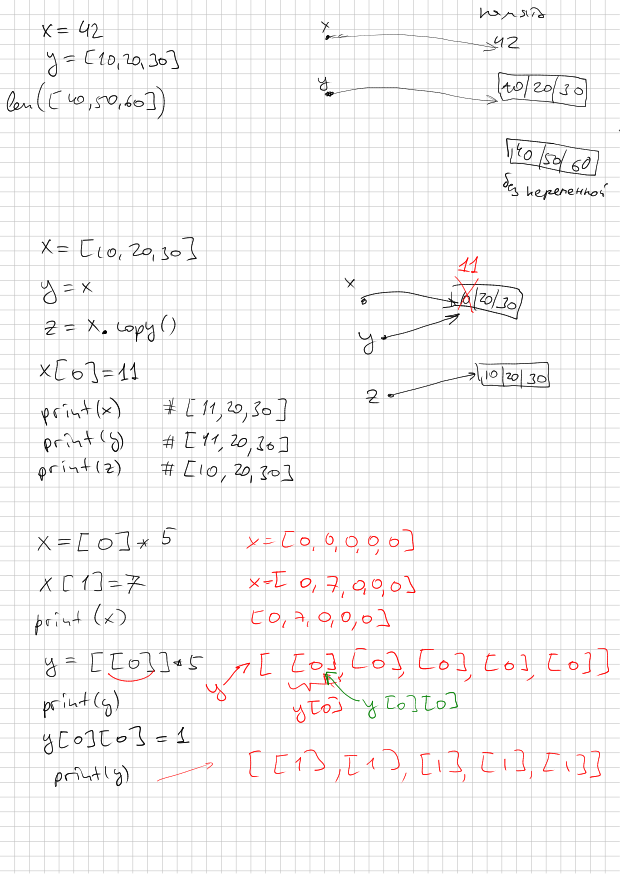 x = 42
y = [10,20,30]
len([40,50,60])
память
x
42
y
10 20 30
40 50 60
без переменной
x = [10, 20, 30]
y = x
z = x.copy()
x[0] = 11
print(x) # [11, 20, 30]
print(y) # [11, 20, 30]
print(z) # [10, 20, 30]
11
x
10 20 30
y
z
10 20 30
x = [0] * 5
x = [0, 0, 0, 0, 0]
x[1] = 7
x = [0, 7, 0, 0, 0]
print(x)
[0, 7, 0, 0, 0]
y = [[0]] * 5
y
[[0], [0], [0], [0], [0]]
print(y)
y[0]
y[0][0]
y[0][0] = 1
print(y)
[[1], [1], [1], [1], [1]]